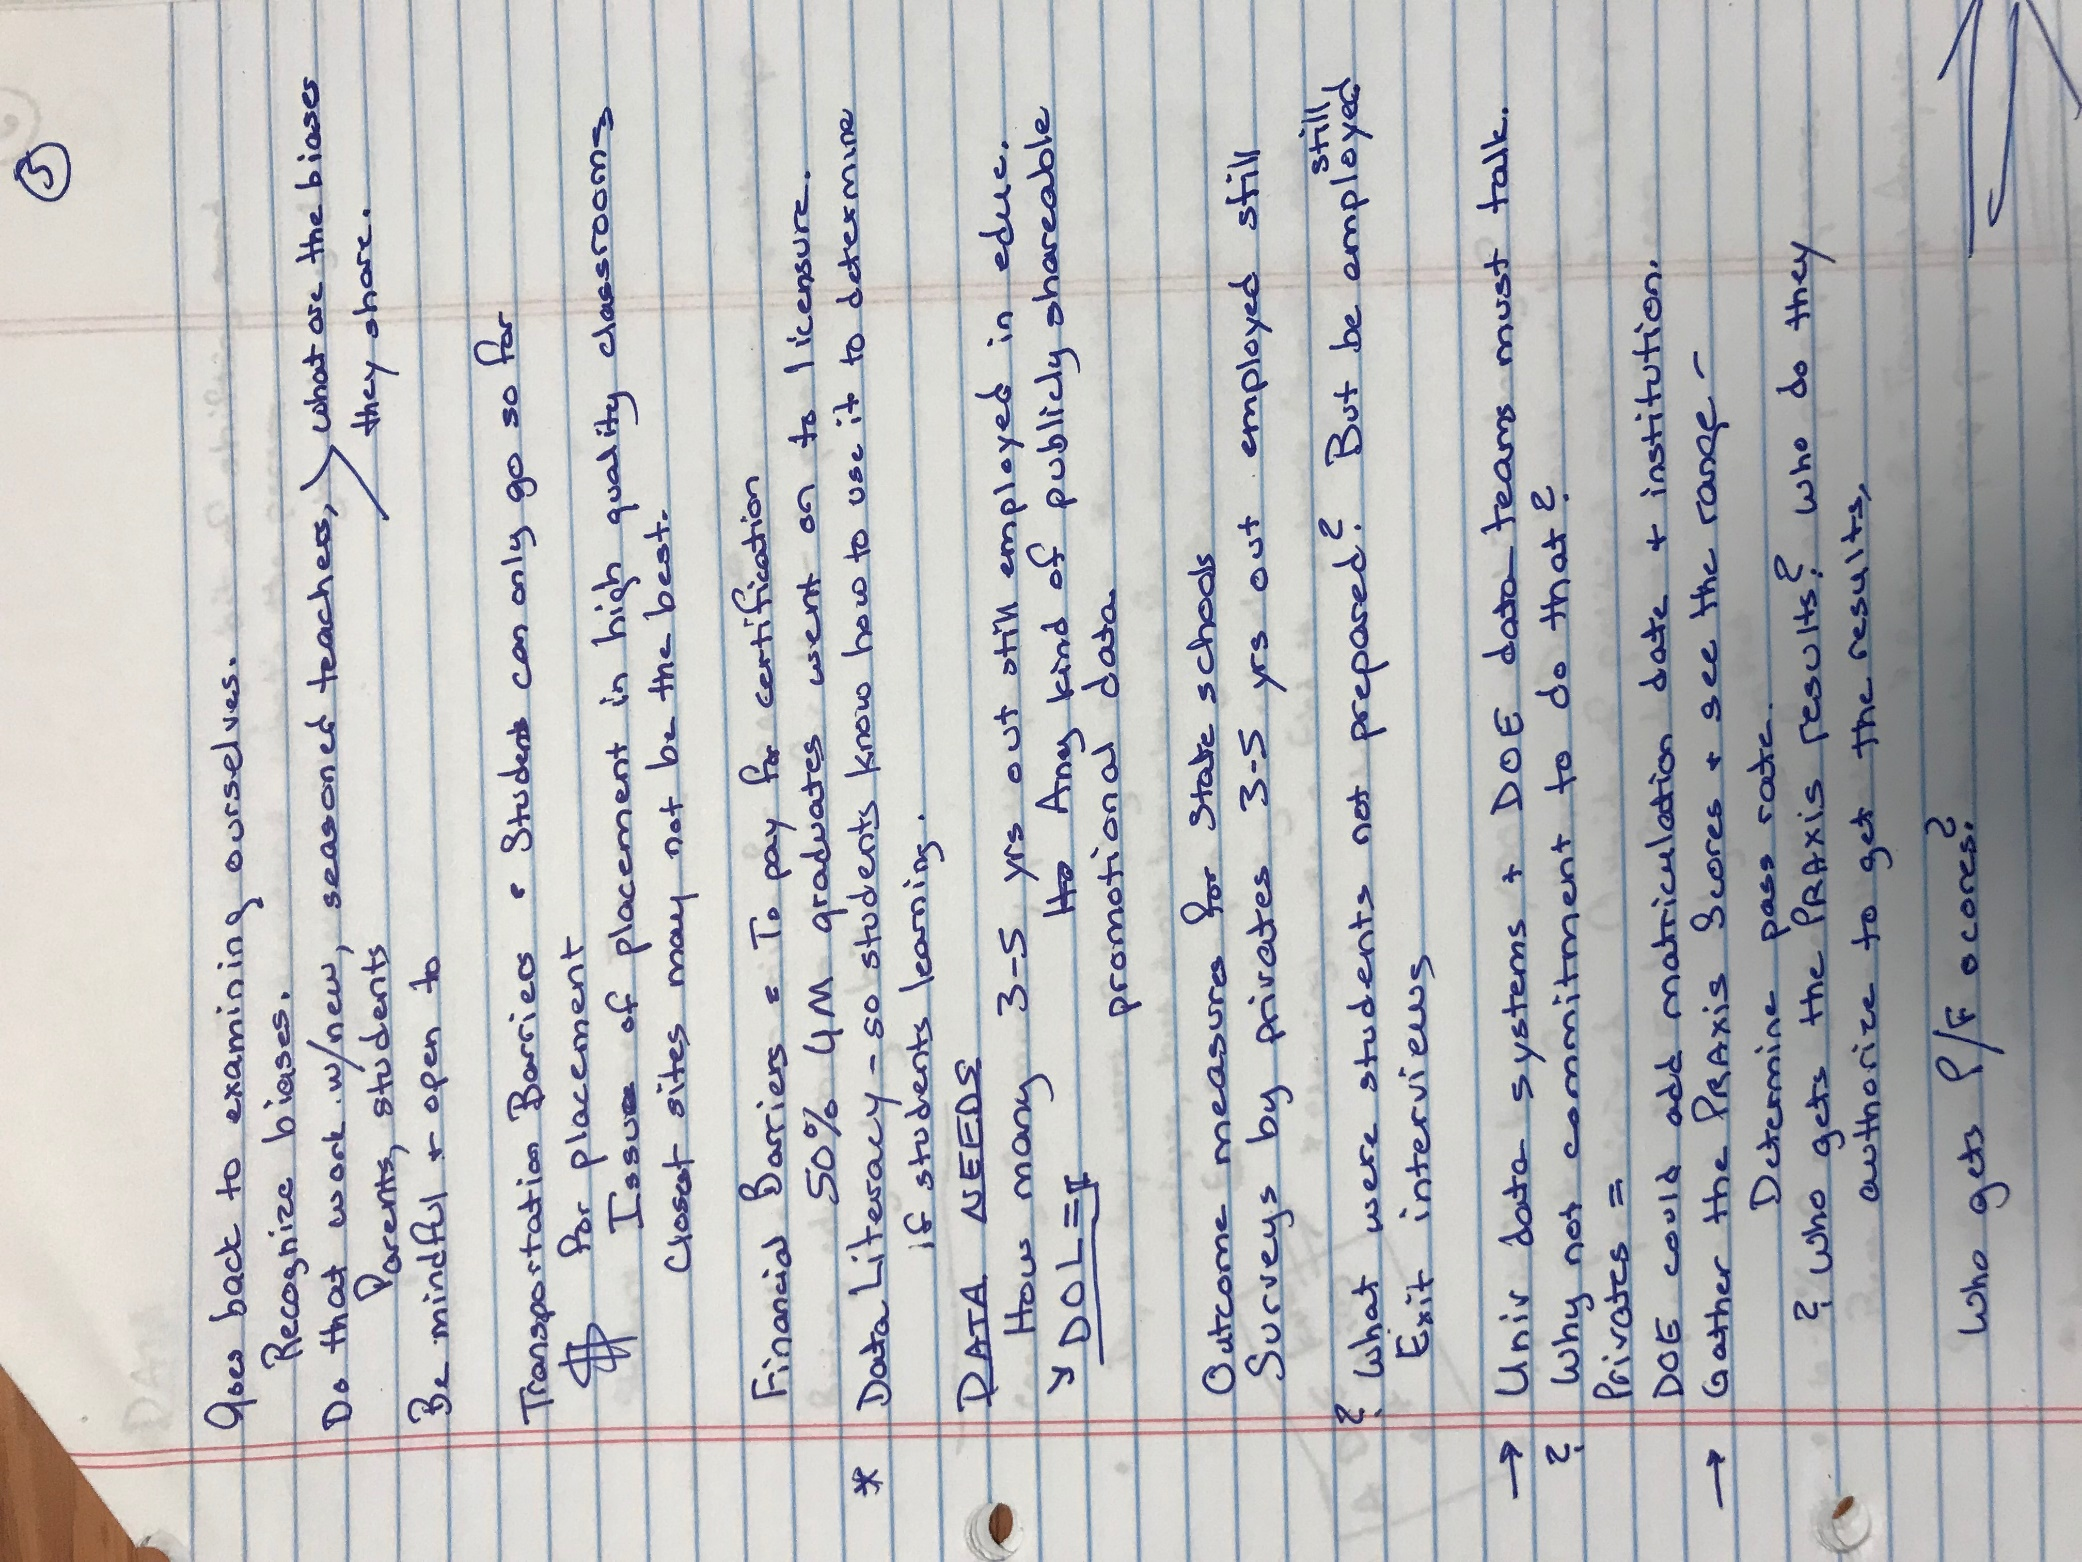 5
Goes back to examining ourselves.
Recognize biases.
Do that work w/new, seasoned teachers, what are the biases
Parents, students they share.
Be mindful + open to
Transportation Barriers • Students can only go so far
$ for placement
Issues of placement in high quality classrooms
Closest sites may not be the best.
Financial Barriers = To pay for certification
50% UM graduates went on to licensure.
* Data Literacy - so students know how to use it to determine
if students learning.
DATA NEEDS
How many 3-5 yrs out still employed in educ.
DOL = Any kind of publicly shareable
promotional data
Outcome measures for state schools
Surveys by privates 3-5 yrs out employed still
still
? What were students not prepared? But be employed
Exit interviews
→ Univ data systems + DOE data teams must talk.
? Why not commitment to do that?
Privates =
DOE could add matriculation date + institution.
→ Gather the PRAXIS Scores + see the range -
Determine pass rate.
? Who gets the PRAXIS results? Who do they
authorize to get the results.
Who gets P/F scores?